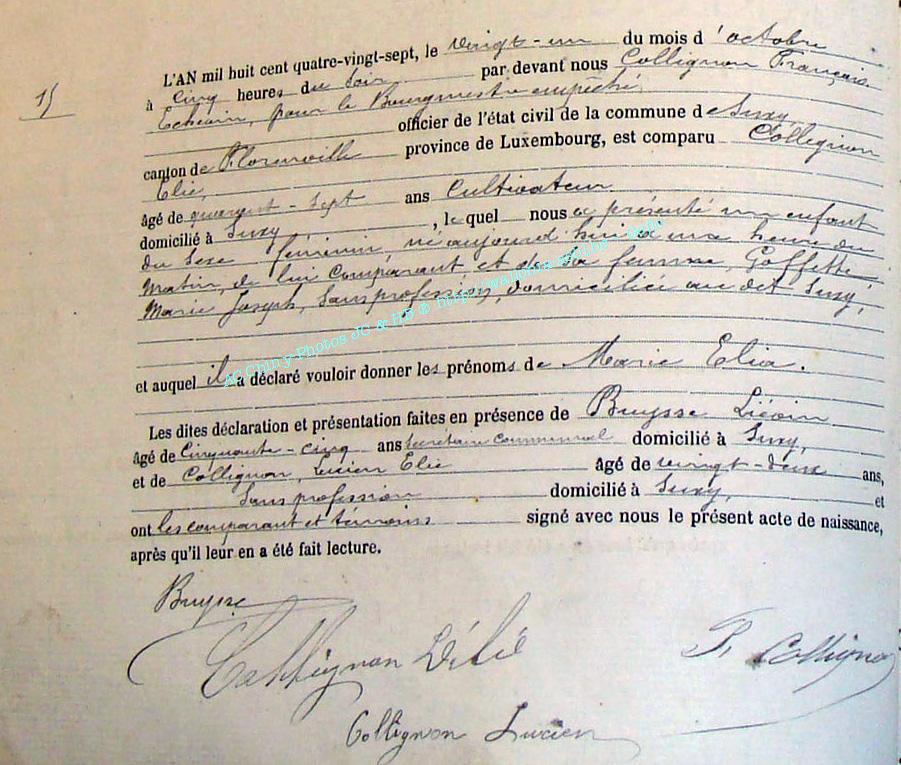 15
L'AN mil huit cent quatre-vingt-sept, le vingt-un du mois d'octobre
à cinq heures du soir par devant nous Collignon François.
Echevin, pour le Bourgmestre empêché,
officier de l'état civil de la commune de Suxy,
canton de Florenville province de Luxembourg, est comparu Collignon
Elie,
âgé de quarant-sept ans Cultivateur
domicilié à Suxy, lequel nous a présenté un enfant
du sexe féminin, né aujourd'hui à une heure du
matin, de lui comparant, et de sa femme, Goffette,
Marie Joseph, sans profession, domiciliée au dit Suxy,
et auquel il a déclaré vouloir donner les prénoms de Marie Elia.
Les dites déclaration et présentation faites en présence de Buysse Liévin
âgé de Cinquante-cinq ans secrétaire communal domicilié à Suxy,
et de Collignon, Lucien Elie âgé de vingt-deux ans,
sans profession domicilié à Suxy, et
ont les comparant et témoins signé avec nous le présent acte de naissance,
après qu'il leur en a été fait lecture.
Buysse
Collignon
F. Collignon
Collignon Lucien
AC Chiny Photos JC & HB ©